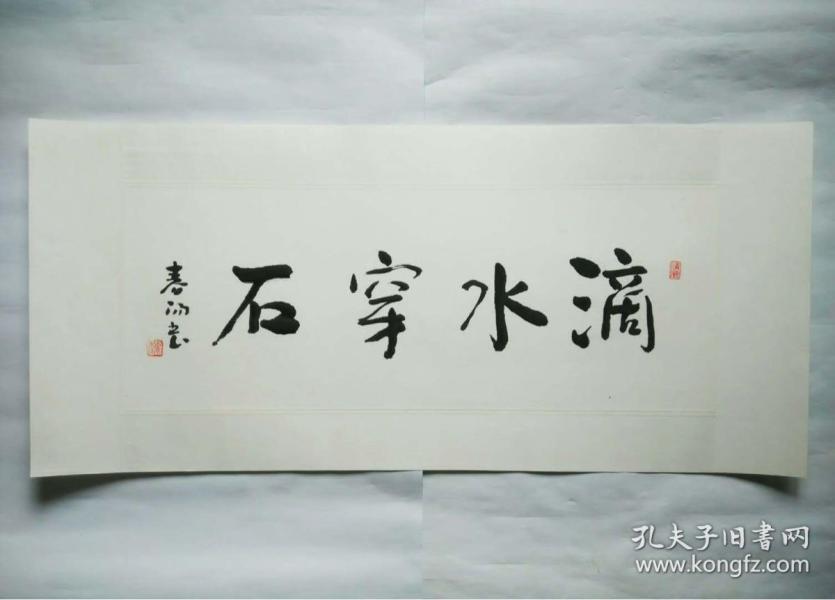 滴水穿石
春沏书
孔夫子旧书网
www.kongfz.com